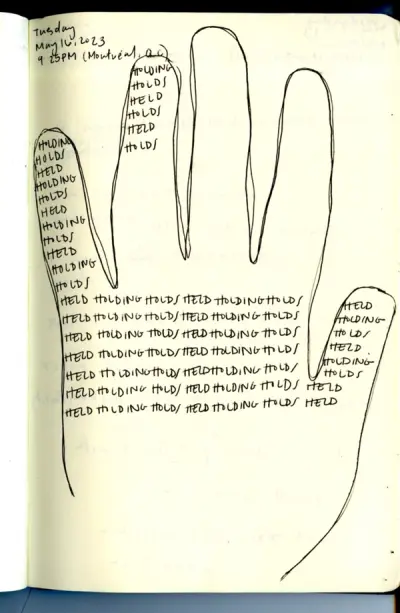 Tuesday
May 16.2023
9 25PM (Montréal, Qc)
HOLDING
HOLDS
HELD
HOLDING
HOLDS
HELD
HOLDING
HOLDS
HELD
HOLDING
HOLDS
HOLDING
HOLDS
HELD
HOLDS
HELD
HOLDS
HELD HOLDING HOLDS HELD HOLDING HOLDS
HELD HOLDING HOLDS HELD HOLDING HOLDS
HELD HOLDING HOLDS HELD HOLDING HOLDS
HELD HOLDING HOLDS HELD HOLDING HOLDS
HELD HOLDING HOLDS HELD HOLDING HOLDS
HELD HOLDING HOLDS HELD HOLDING HOLDS HELD
HELD HOLDING HOLDS HELD HOLDING HOLDS HELD
HELD
HOLDING
HOLDS
HELD
HOLDING
HOLDS